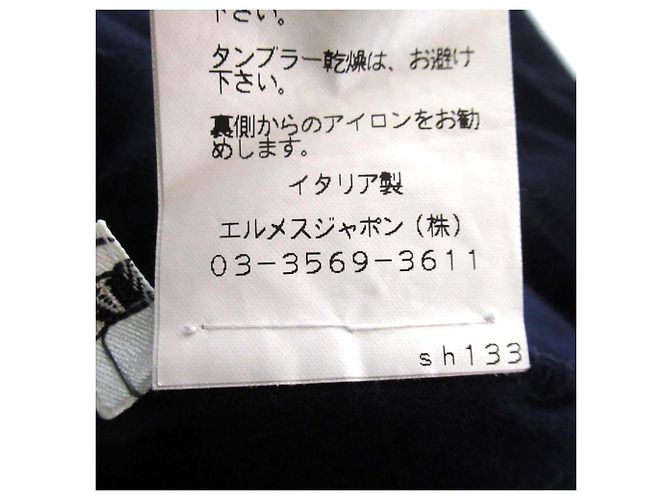 下さい。
タンブラー乾燥は、お避け
下さい。
裏側からのアイロンをお勧
めします。
イタリア製
エルメスジャポン(株)
03-3569-3611
sh133